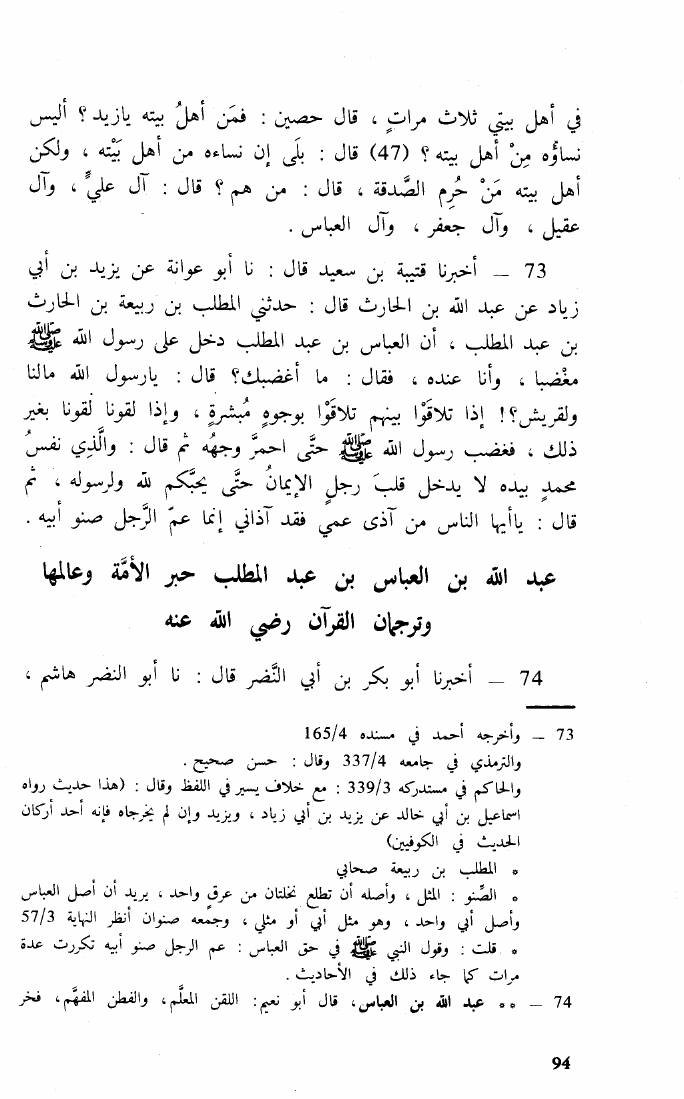 في أهل بيتي ثلاث مراتٍ ، قال حصين : فمَن أهلُ بيته يازيد ؟ أليس
نساؤه مِنْ أهل بيته ؟ (47) قال : بلَى إن نساءه من أهل بَيْته ، ولكن
أهل بيته مَنْ حُرِم الصَّدقة ، قال : من هم ؟ قال : آل عليٍّ ، وآل
عقيل ، وآل جعفر ، وآل العباس .
73 — أخبرنا قتيبة بن سعيد قال : نا أبو عوانة عن يزيد بن أبي
زياد عن عبد الله بن الحارث قال : حدثني المطلب بن ربيعة بن الحارث
بن عبد المطلب ، أن العباس بن عبد المطلب دخل على رسول الله ﷺ
مغْضبا ، وأنا عنده ، فقال : ما أغضبك؟ قال : يارسول الله مالنا
ولقريش؟! إذا تلاقَوْا بينهم تلاقَوْا بوجوهٍ مُبشرةٍ ، وإذا لقونا لقونا بغير
ذلك ، فغضب رسول الله ﷺ حتَّى احمرَّ وجهُه ثم قال : والَّذِي نفسُ
محمدٍ بيده لا يدخل قلبَ رجلٍ الإيمانُ حتَّى يحبَّكم لله ولرسوله ، ثم
قال : ياأيها الناس من آذى عمي فقد آذاني إنما عمّ الرَّجل صنو أبيه .
عبد الله بن العباس بن عبد المطلب حبر الأمَّة وعالمها
وترجمان القرآن رضي الله عنه
74 — أخبرنا أبو بكر بن أبي النَّضر قال : نا أبو النضر هاشم ،
73 — وأخرجه أحمد في مسنده 165/4
والترمذي في جامعه 337/4 وقال : حسن صحيح .
والحاكم في مستدركه 339/3 : مع خلاف يسير في اللفظ وقال : (هذا حديث رواه
اسماعيل بن أبي خالد عن يزيد بن أبي زياد ، ويزيد وإن لم يخرجاه فإنه أحد أركان
الحديث في الكوفيين)
* المطلب بن ربيعة صحابي
* الصِّنو : المثل ، وأصله أن تطلع نخلتان من عرقٍ واحد ، يريد أن أصل العباس
وأصل أبي واحد ، وهو مثل أبي أو مثلي ، وجمعه صنوان أنظر النهاية 57/3
* قلت : وقول النبي ﷺ في حق العباس : عم الرجل صنو أبيه تكررت عدة
مرات كما جاء ذلك في الأحاديث .
74 — ** عبد الله بن العباس، قال أبو نعيم: اللقن المعلَّم، والفطن المفهَّم، فخر
94